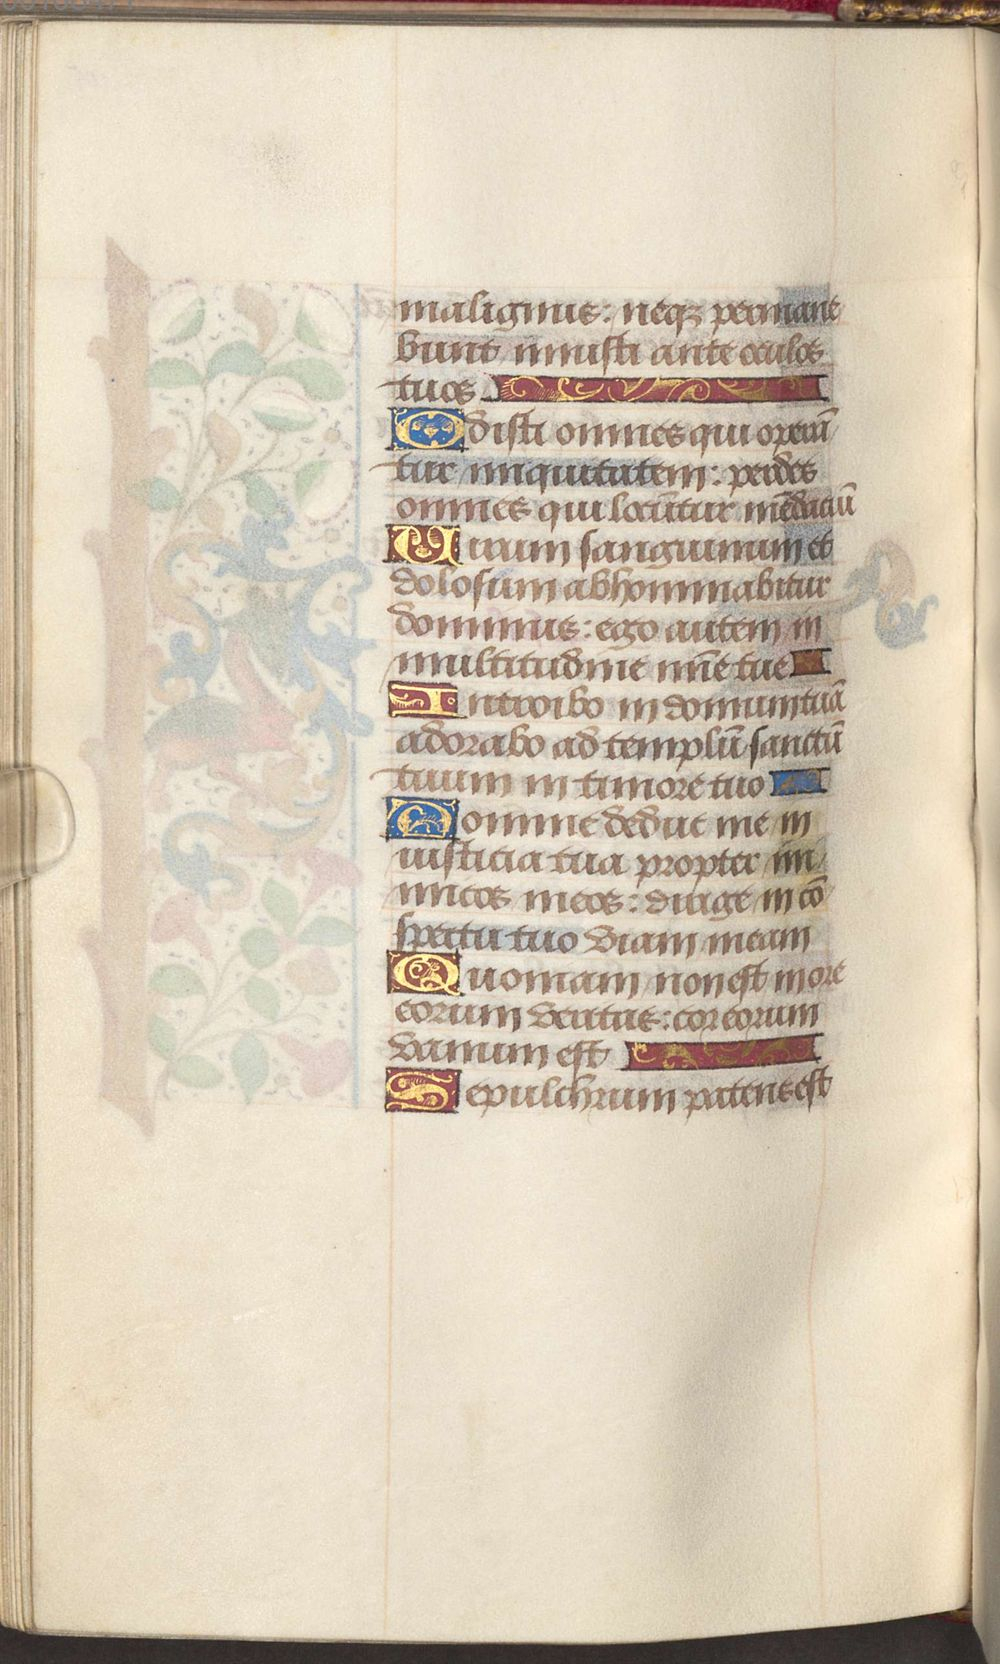 malignus: neqꝫ permane
bunt iniusti ante oculos
tuos
Odisti omnes qui operan̄
tur iniquitatem: perdes
omnes qui locūtur mēdaciū
Uirum sanguinum et
dolosum abhominabitur
dominus: ego autem in
multitudine mīe tue
Introibo in domum tuā
adorabo ad templū sanctū
tuum in timore tuo
Domine deduc me in
iusticia tua propter ini
micos meos: dirige in cō
spectu tuo viam meam
Quoniam non est in ore
eorum veritas: cor eorum
vanum est
Sepulchrum patens est